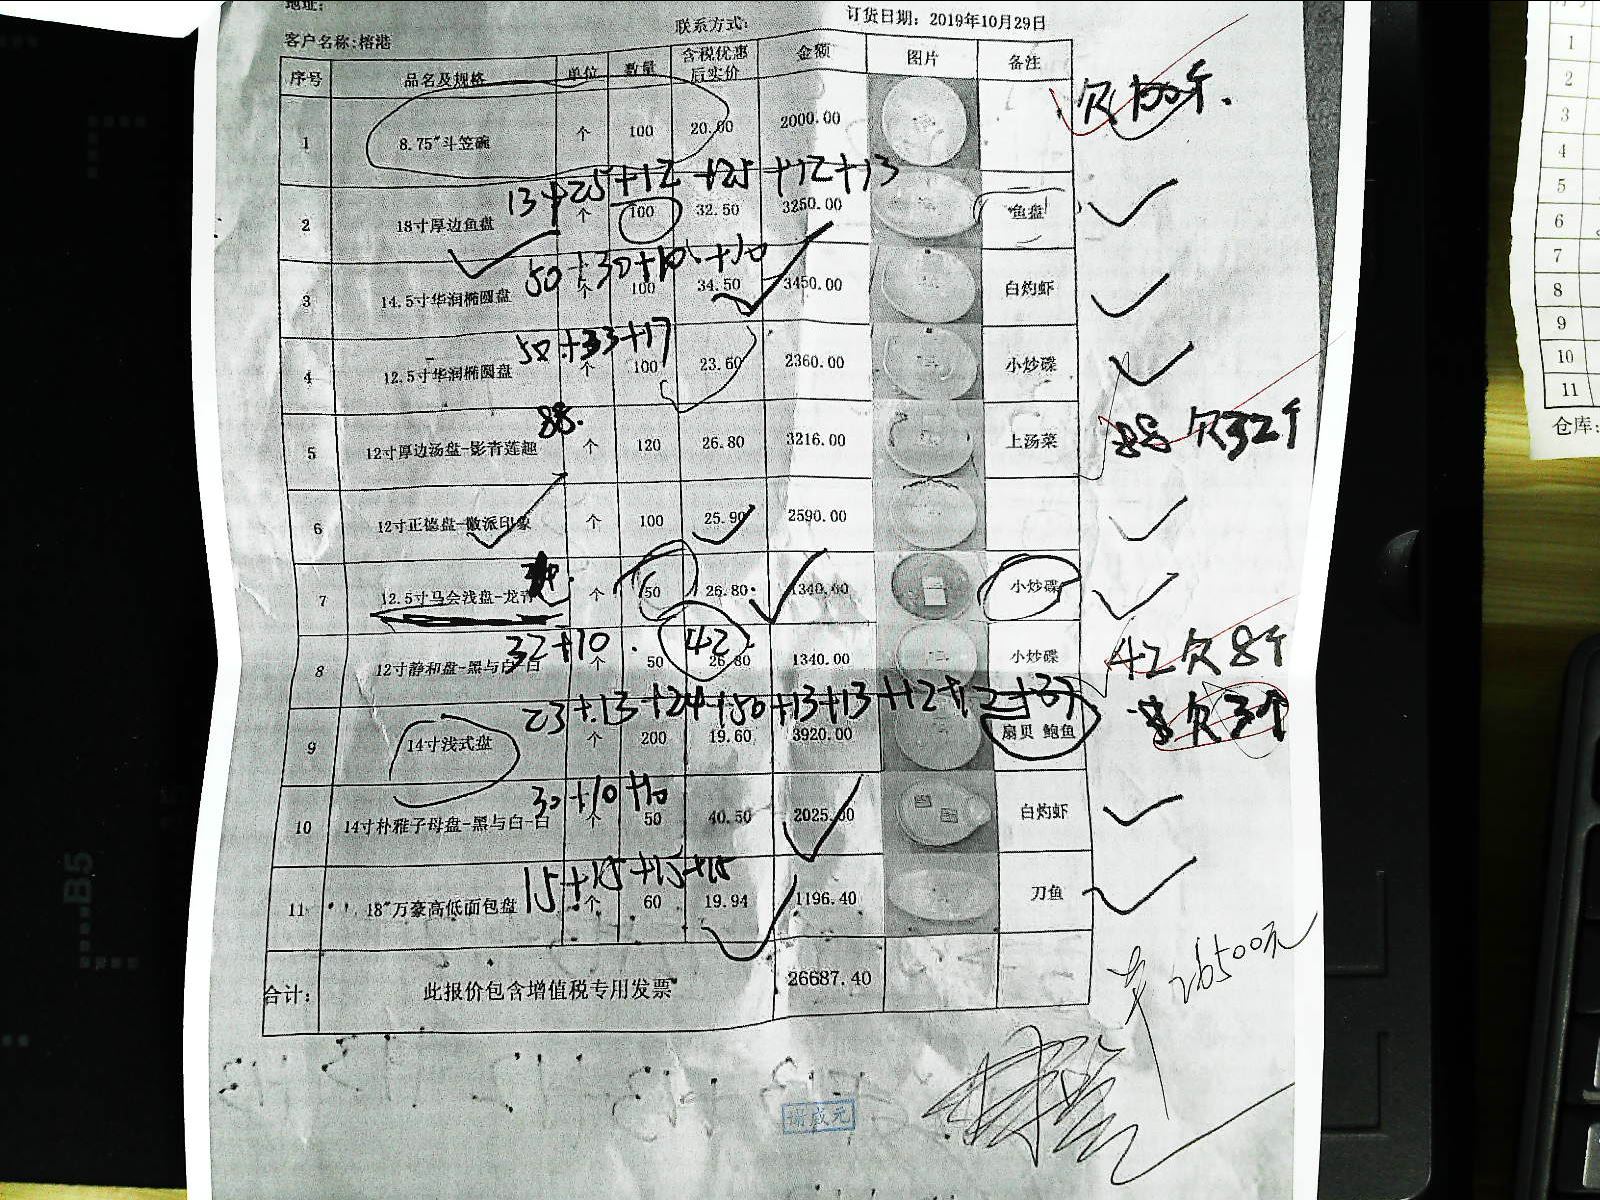 地址:
联系方式:
订货日期: 2019年10月29日
客户名称:榕港
序号 品名及规格 单位 数量 含税优惠后实价 金额 图片 备注
1 8.75"斗笠碗 个 100 20.00 2000.00 欠100个.
13+25+12+25+12+13
2 18寸厚边鱼盘 个 100 32.50 3250.00 鱼盘
50+30+10+10
3 14.5寸华润椭圆盘 个 100 34.50 3450.00 白灼虾
50+33+17
4 12.5寸华润椭圆盘 个 100 23.60 2360.00 小炒碟
88.
5 12寸厚边汤盘-影青莲趣 个 120 26.80 3216.00 上汤菜 88 欠32个
6 12寸正德盘-徽派印象 个 100 25.90 2590.00
7 12.5寸马会浅盘-龙青 个 50 26.80 1340.00 小炒碟
32+10. 42
8 12寸静和盘-黑与白-白 个 50 26.80 1340.00 小炒碟 42欠8个
23+13+24+50+13+13+12+12+37
9 14寸浅式盘 个 200 19.60 3920.00 扇贝 鲍鱼 欠3个
30+10+10
10 14寸朴雅子母盘-黑与白-白 个 50 40.50 2025.00 白灼虾
15+15+15+15
11 18"万豪高低面包盘 个 60 19.94 1196.40 刀鱼
合计: 此报价包含增值税专用发票 26687.40
26500元
B5
1
2
3
4
5
6
7
8
9
10
11
仓库: